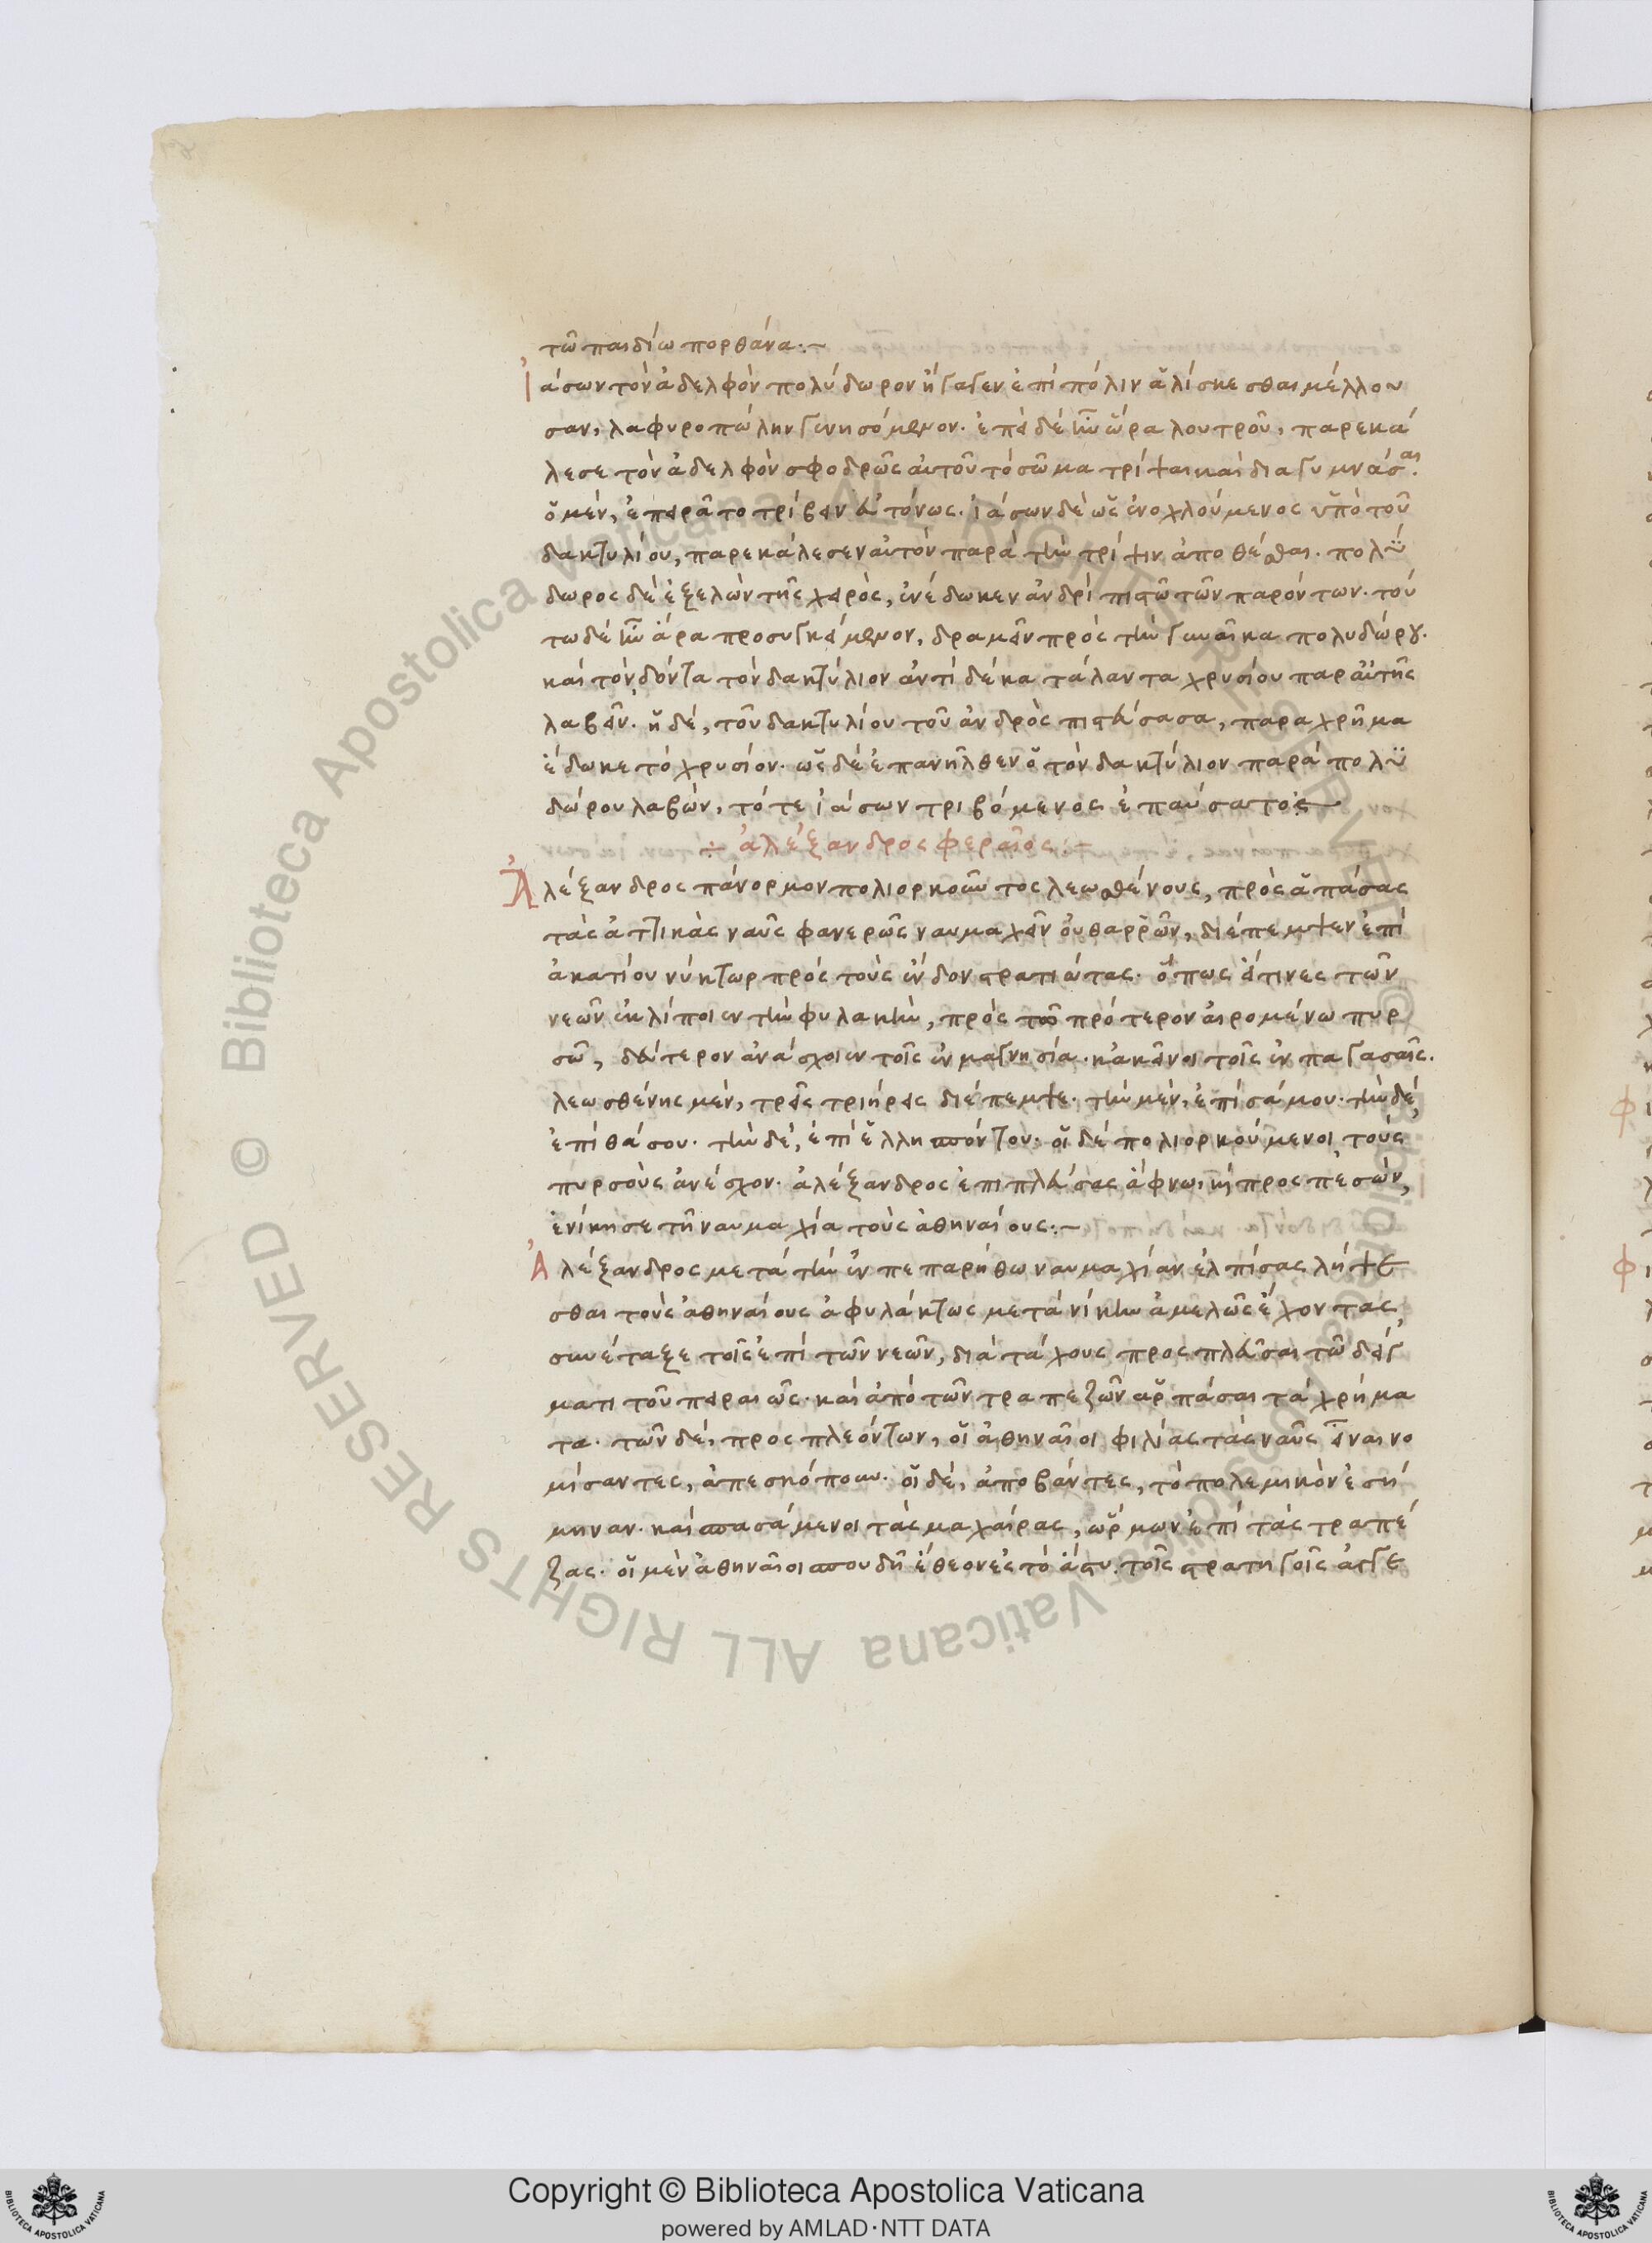 τῶ παιδίω πορθάνα:~
Ἰάσων τὸν ἀδελφὸν πολύδωρον ἤγαγεν ἐπὶ πόλιν ἁλίσκεσθαι μέλλου
σαν, λαφυροπώλην γενησόμενον. ἐπεὶ δὲ ἦν ὥρα λουτροῦ, παρεκά
λεσε τὸν ἀδελφὸν σφοδρῶς αὐτοῦ τὸ σῶμα τρίψαι καὶ διαγυμνάσαι.
ὁ μὲν, ἐπειρᾶτο τρίβειν εὐτόνως. ἰάσων δὲ ὡς ἐνοχλούμενος ὑπὸ τοῦ
δακτυλίου, παρεκάλεσεν αὐτὸν παρὰ τὴν τρίψιν ἀποθέσθαι. πολύ
δωρος δὲ ἐξελὼν τῆς χειρὸς, ἐνέδωκεν ἀνδρὶ πιστῶ τῶν παρόντων. τού
τω δὲ ἦν ἄρα προσυγκείμενον, δραμεῖν πρὸς τὴν γυναῖκα πολυδώρου.
καὶ τὸν δόντα τὸν δακτύλιον ἀντὶ δέκα τάλαντα χρυσίου παραὐτῆς
λαβεῖν. ἡ δὲ, τοῦ δακτυλίου τοῦ ἀνδρὸς πιστεύσασα, παραχρῆμα
ἔδωκε τὸ χρυσίον. ὡς δὲ ἐπανῆλθεν ὁ τὸν δακτύλιον παρὰ πολυ
δώρου λαβὼν, τότε ἰάσων τριβόμενος ἐπαύσατο:~
ἀλέξανδρος φεραῖος:~
Ἀλέξανδρος πάνορμον πολιορκοῦντος λεωσθένους, πρὸς ἁπάσας
τὰς ἀττικὰς ναῦς φανερῶς ναυμαχεῖν οὐ θαρρῶν, διέπεμψεν ἐπὶ
ἀκατίου νύκτωρ πρὸς τοὺς ἔνδον στρατιώτας. ὅπως εἴ τινες τῶν
νεῶν ἐκλίποιεν τὴν φυλακὴν, πρὸς τῶ πρότερον αἰρομένω πυρ
σῶ, δεύτερον ἀνάσχοιεν τοῖς ἐν μαγνησία. κἀκεῖνοι τοῖς ἐν παγασαῖς.
λεωσθένης μὲν, τρεῖς τριήρεις διέπεμψε. τὴν μὲν, ἐπὶ σάμου. τὴν δὲ,
ἐπὶ θάσου. τὴν δὲ, ἐπὶ ἑλλησπόντου. οἱ δὲ πολιορκούμενοι, τοὺς
πυρσοὺς ἀνέσχον. ἀλέξανδρος ἐπιπλεύσας ἄφνω, καὶ προσπεσὼν,
ἐνίκησε τῆ ναυμαχία τοὺς ἀθηναίους:~
Ἀλέξανδρος μετὰ τὴν ἐν πεπαρήθω ναυμαχίαν ἐλπίσας λήψε
σθαι τοὺς ἀθηναίους ἀφυλάκτως μετὰ νίκην ἀμελῶς ἔχοντας,
συνέταξε τοῖς ἐπὶ τῶν νεῶν, διὰ τάχους προσπλεῦσαι τῶ δείγ
ματι τοῦ πειραιῶς. καὶ ἀπὸ τῶν τραπεζῶν ἁρπάσαι τὰ χρήμα
τα. τῶν δὲ, προσπλεόντων, οἱ ἀθηναῖοι φιλίας τὰς ναῦς εἶναι νο
μίσαντες, ἀπεσκόπουν. οἱ δὲ, ἀποβάντες, τὸ πολεμικὸν ἐσή
μηναν. καὶ σπασάμενοι τὰς μαχαίρας, ὥρμων ἐπὶ τὰς τραπέ
ζας. οἱ μὲν ἀθηναῖοι σπουδῆ ἔθεον εἰς τὸ ἄστυ. τοῖς στρατηγοῖς ἀγγε
© Biblioteca Apostolica Vaticana ALL RIGHTS RESERVED
© Biblioteca Apostolica Vaticana ALL RIGHTS RESERVED
Copyright © Biblioteca Apostolica Vaticana
powered by AMLAD·NTT DATA
BIBLIOTECA APOSTOLICA VATICANA
BIBLIOTECA APOSTOLICA VATICANA